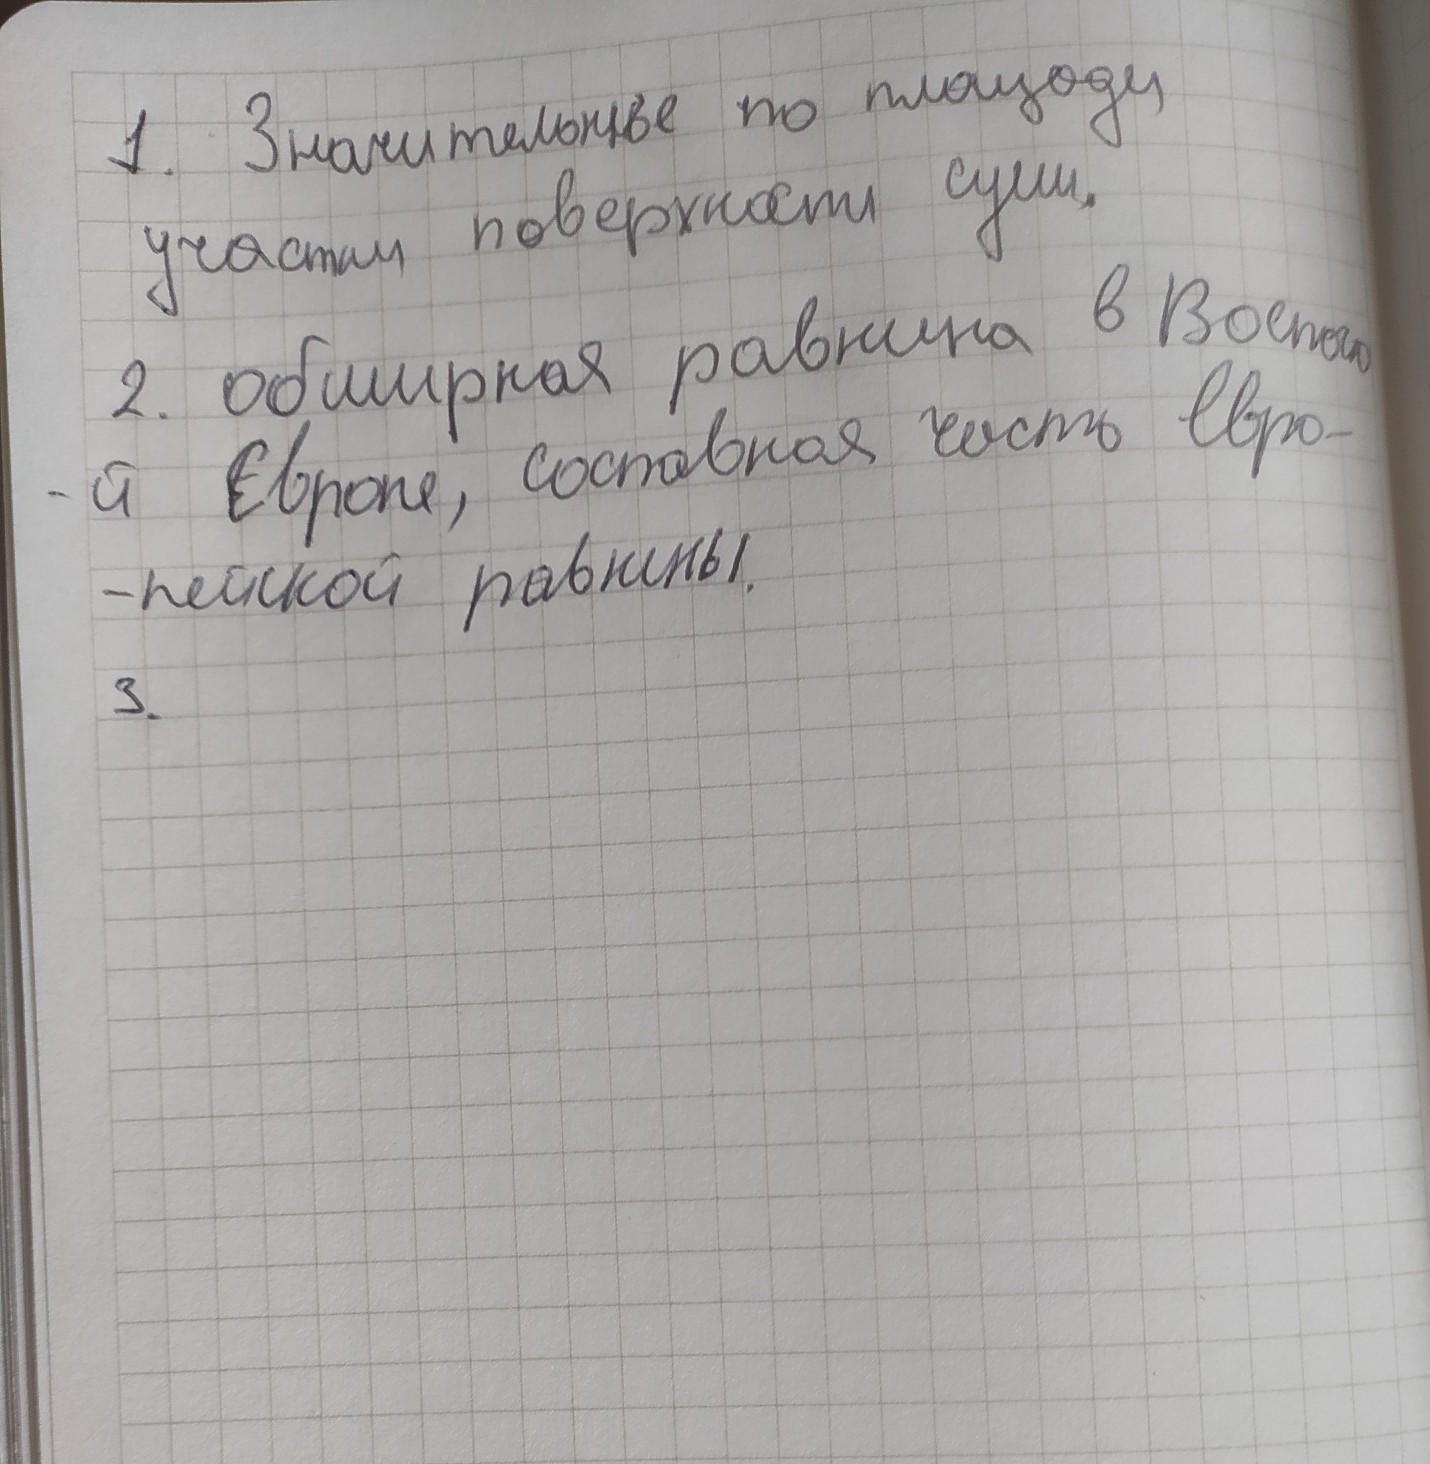 1. Значительные по площади
участки поверхности суши.
2. обширная равнина в Восточно
-й Европе, составная часть Евро-
-пейской равнины.
3.